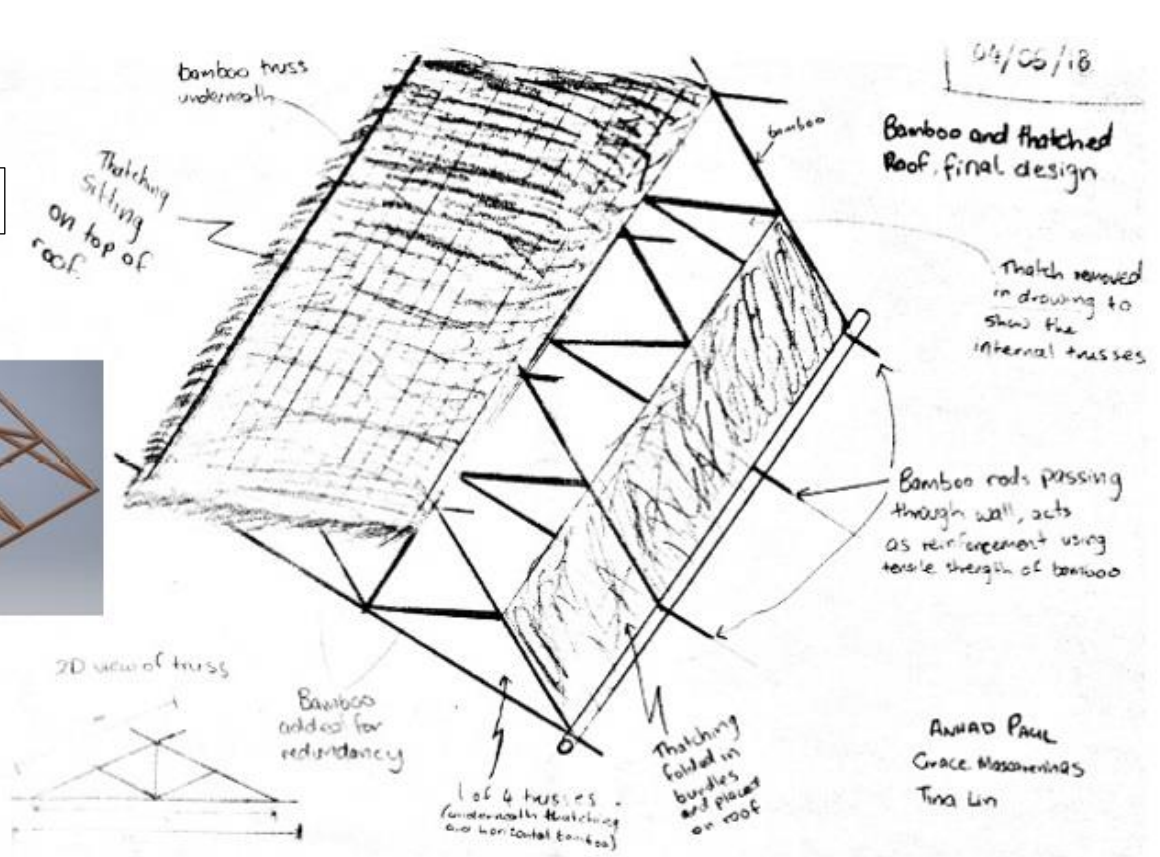 04/05/18
Bamboo and thatched
Roof, final design
bamboo truss
underneath
Thatching
Sitting
on top of
roof
bamboo
Thatch removed
in drawing to
show the
internal trusses
Bamboo rods passing
through wall, acts
as reinforcement using
tensile strength of bamboo
2D view of truss
Bamboo
added for
redundancy
1 of 4 trusses
(underneath thatching
and horizontal bamboo)
Thatching
folded in
bundles
and placed
on roof
ANHAD PAUL
Grace Mascarenhas
Tina Lin